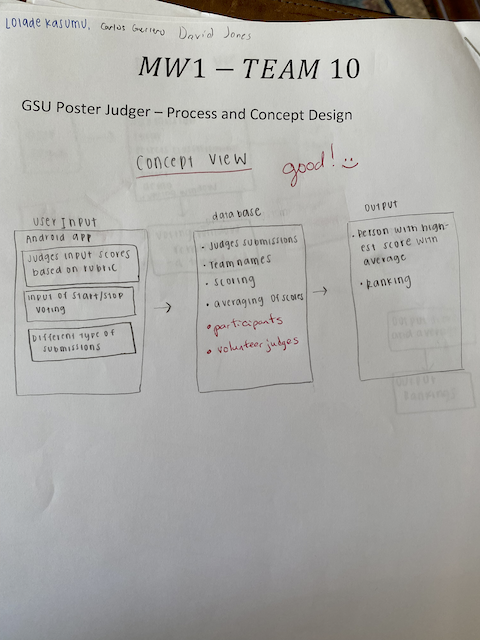 Lolade Kasumu, Carlos Guerrero David Jones
MW1 – TEAM 10
GSU Poster Judger – Process and Concept Design
Concept View
good!
User Input
Android app
Judges input scores
based on rubric
Input of start/stop
voting
Different type of
submissions
database
• Judges submissions
• Team names
• scoring
• averaging of scores
• participants
• volunteer judges
Output
• Person with high-
est score with
average
• Ranking